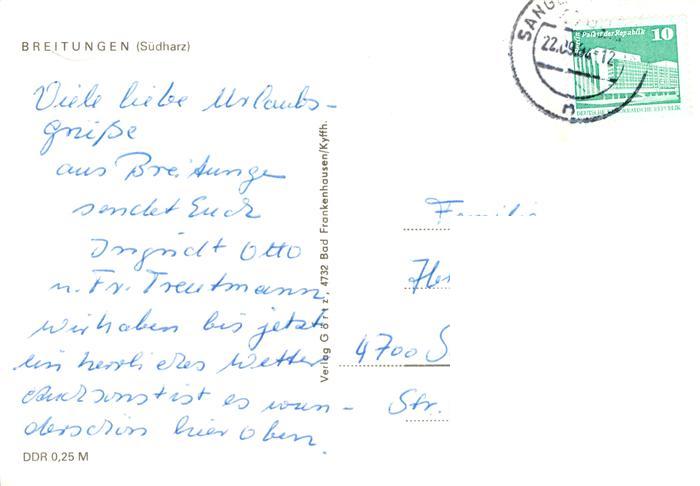 BREITUNGEN (Südharz)
Viele liebe Urlaubs-
grüße
aus Breitunge
sendet Euch
Ingridt Otto
u. Fr. Treutmann
wir haben bis jetzt
ein herrliches Wetter
auch sonst ist es wun-
derschön hier oben.
DDR 0,25 M
Verlag Görtz, 4732 Bad Frankenhausen/Kyffh.
22.09.84-12
Palast der Republik
10
DEUTSCHE DEMOKRATISCHE REPUBLIK
Familie
4700 S
Str.